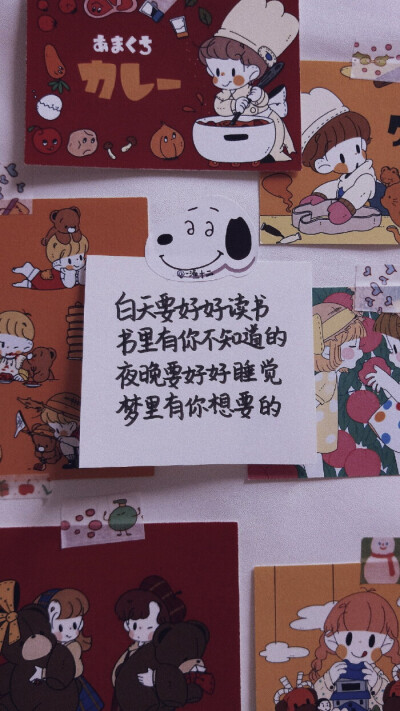 あまくち
カレー
白天要好好读书
书里有你不知道的
夜晚要好好睡觉
梦里有你想要的